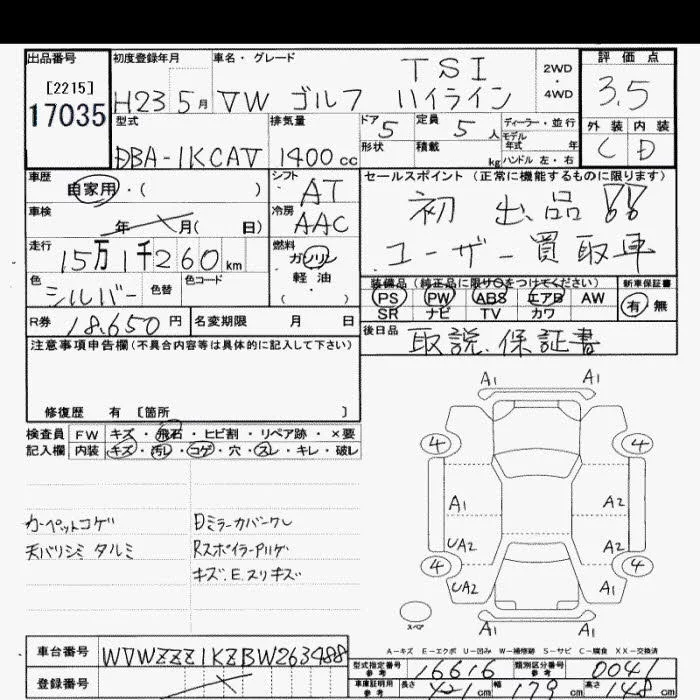 出品番号
[2215]
17035
初度登録年月
H23 5月
車名・グレード
VW ゴルフ TSI ハイライン
2WD
・
4WD
評価点
3.5
外装 内装
C D
型式
DBA-1KCAV
排気量
1400cc
ドア 5
形状
定員 5人
積載 kg
ディーラー・並行
モデル年式 年
ハンドル 左・右
車歴
自家用・( )
車検
年 月( 日)
走行
15万1千260km
色
シルバー
色替
色コード
シフト
AT
冷房
AAC
燃料
ガソリン
軽油
( )
セールスポイント(正常に機能するものに限ります)
初出品!!
ユーザー買取車
装備品(純正品に限り○をつけてください)
PS PW ABS エアB AW
SR ナビ TV カワ
新車保証書
有 無
R券 18,650円
名変期限 月 日
後日品
取説、保証書
注意事項申告欄(不具合内容等は具体的に記入して下さい)
修復歴 有 [箇所 ]
検査員記入欄
FW キズ・飛石・ヒビ割・リペア跡・×要
内装 キズ・汚レ・コゲ・穴・スレ・キレ・破レ
カーペットコゲ
天バリシミ タルミ
Dミラーカバーワレ
RスポイラーPハゲ
キズ、E、スリキズ
A1 A1
4 4
A1 A2
UA2 A2
4 4
UA2 A1
A1 A1
スペア
A-キズ E-エクボ U-凹み W-補修跡 S-サビ C-腐食 XX-交換済
車台番号
WVWZZZ1KZBW263488
登録番号
型式指定番号 参考
16616
類別区分番号 参考
0041
車庫証明用 参考
長さ 421cm 幅 179cm 高さ 148cm